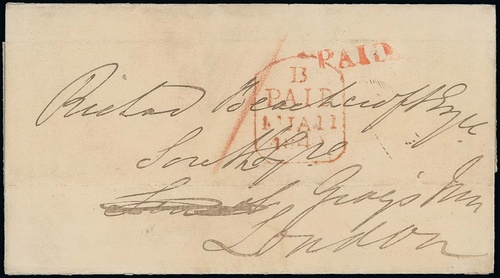 PAID
B
PAID
11 JA 11
Richad Beachcroft Esqre
South Sqre
Grays Inn
London